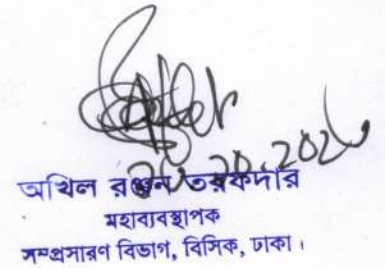 অখিল রঞ্জন তরফদার
মহাব্যবস্থাপক
সম্প্রসারণ বিভাগ, বিসিক, ঢাকা।